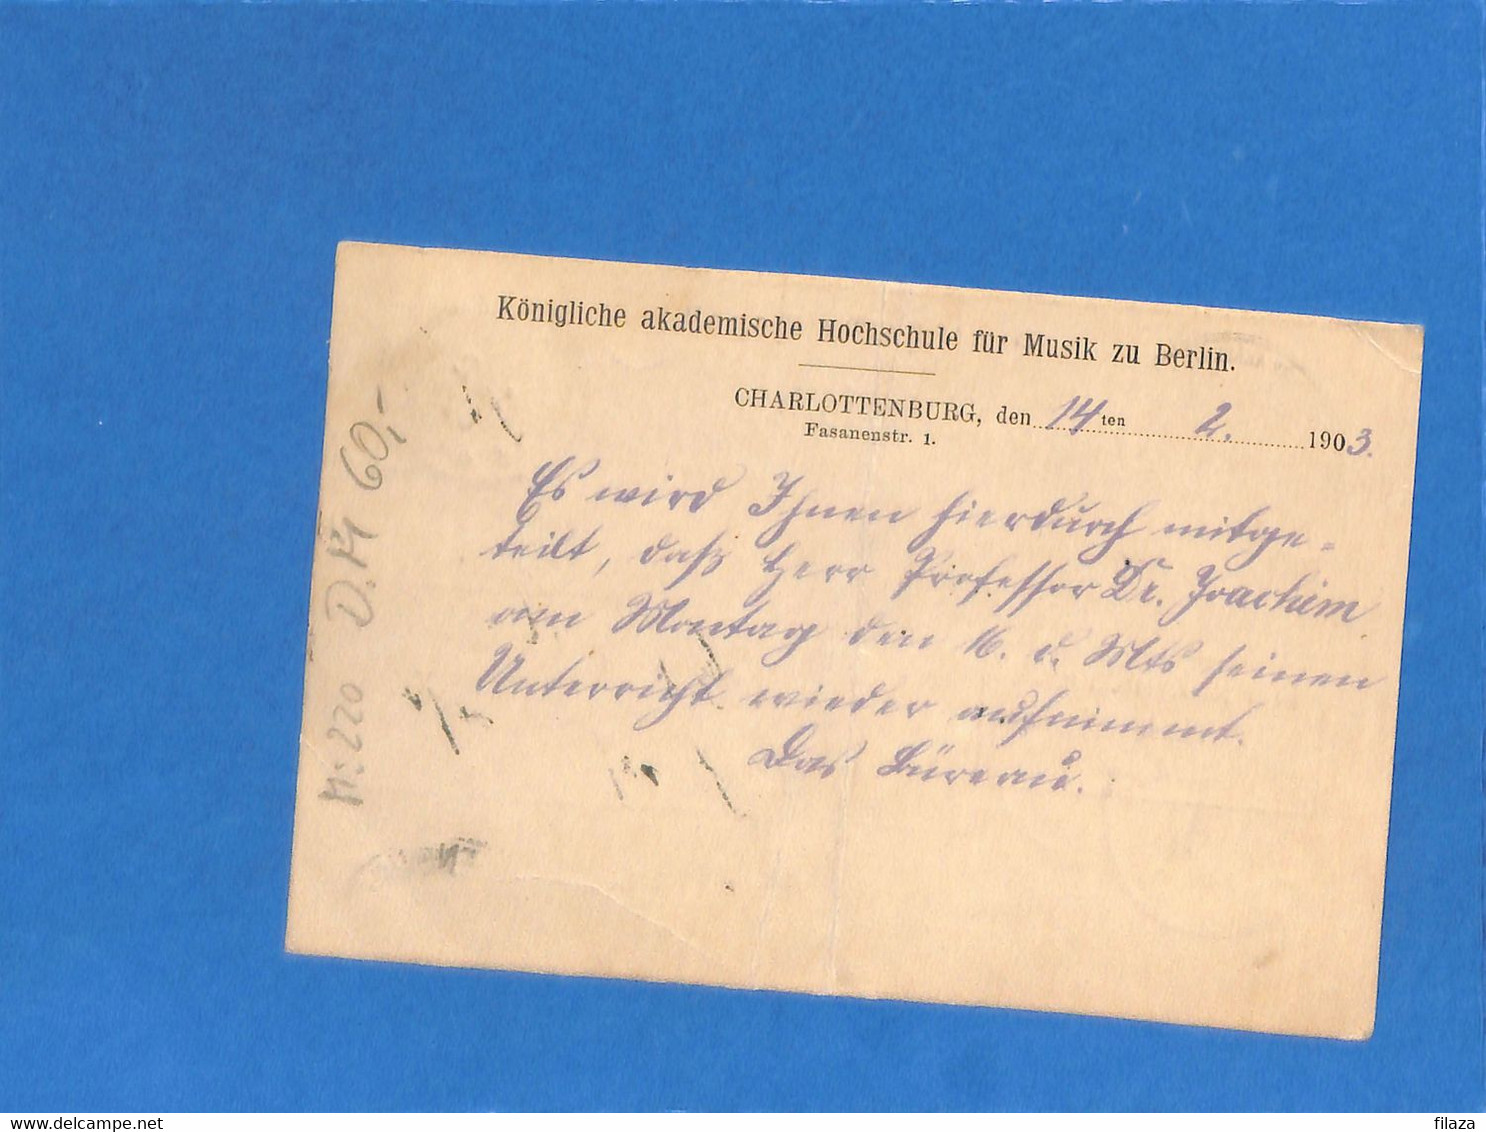 Königliche akademische Hochschule für Musik zu Berlin.
CHARLOTTENBURG, den 14ten 2. 1903.
Fasanenstr. 1.
Es wird Ihnen hierdurch mitge-
teilt, daß Herr Professor Dr. Joachim
am Montag den 16. d. Mts seinen
Unterricht wieder aufnimmt.
Das Büreau.
M:220 D.M 60,-
filaza